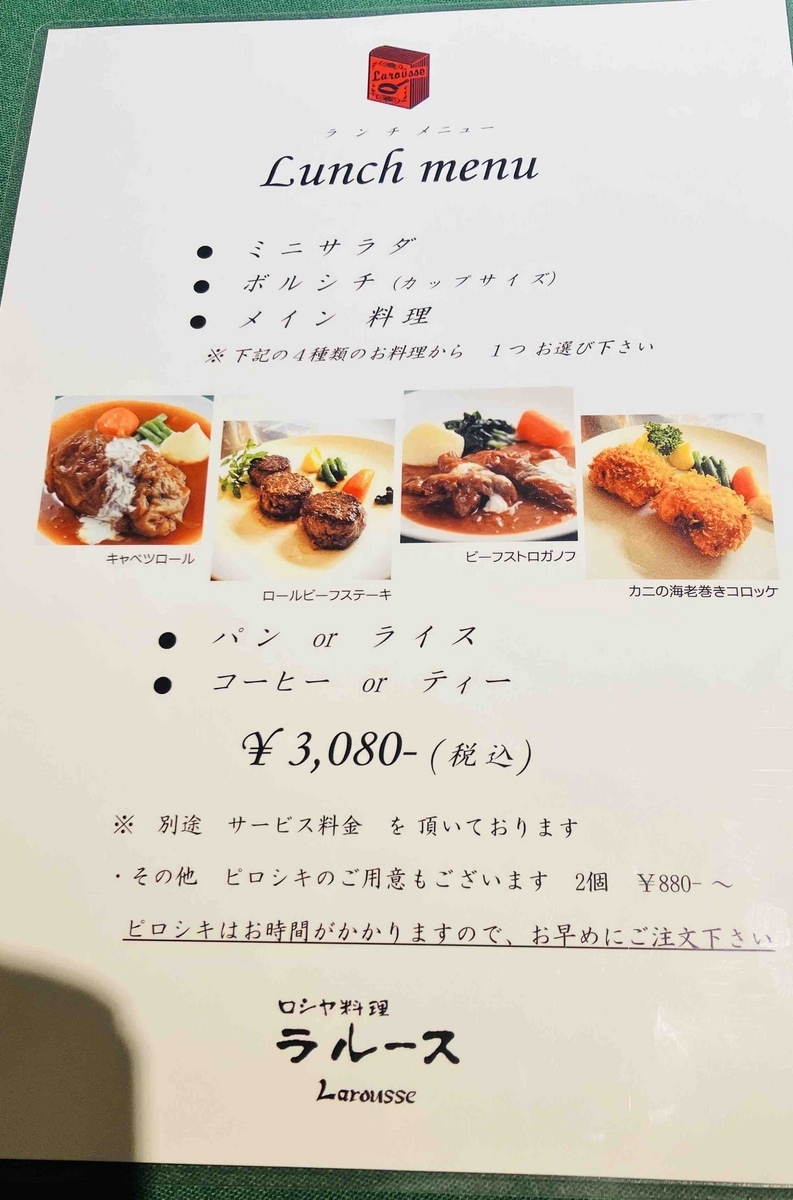 Larousse
ランチメニュー
Lunch menu
● ミニサラダ
● ボルシチ (カップサイズ)
● メイン 料理
※ 下記の4種類のお料理から 1つ お選び下さい
キャベツロール
ロールビーフステーキ
ビーフストロガノフ
カニの海老巻きコロッケ
● パン or ライス
● コーヒー or ティー
¥3,080-(税込)
※ 別途 サービス料金 を 頂いております
・その他 ピロシキのご用意もございます 2個 ¥880-～
ピロシキはお時間がかかりますので、お早めにご注文下さい
ロシヤ料理
ラルース
Larousse